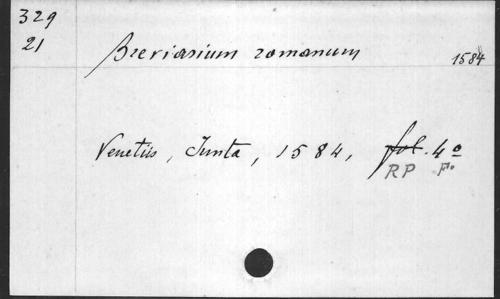 329
21
Breviarium romanum
1584
Venetiis, Junta, 1584, fol. 4º
RP Fº